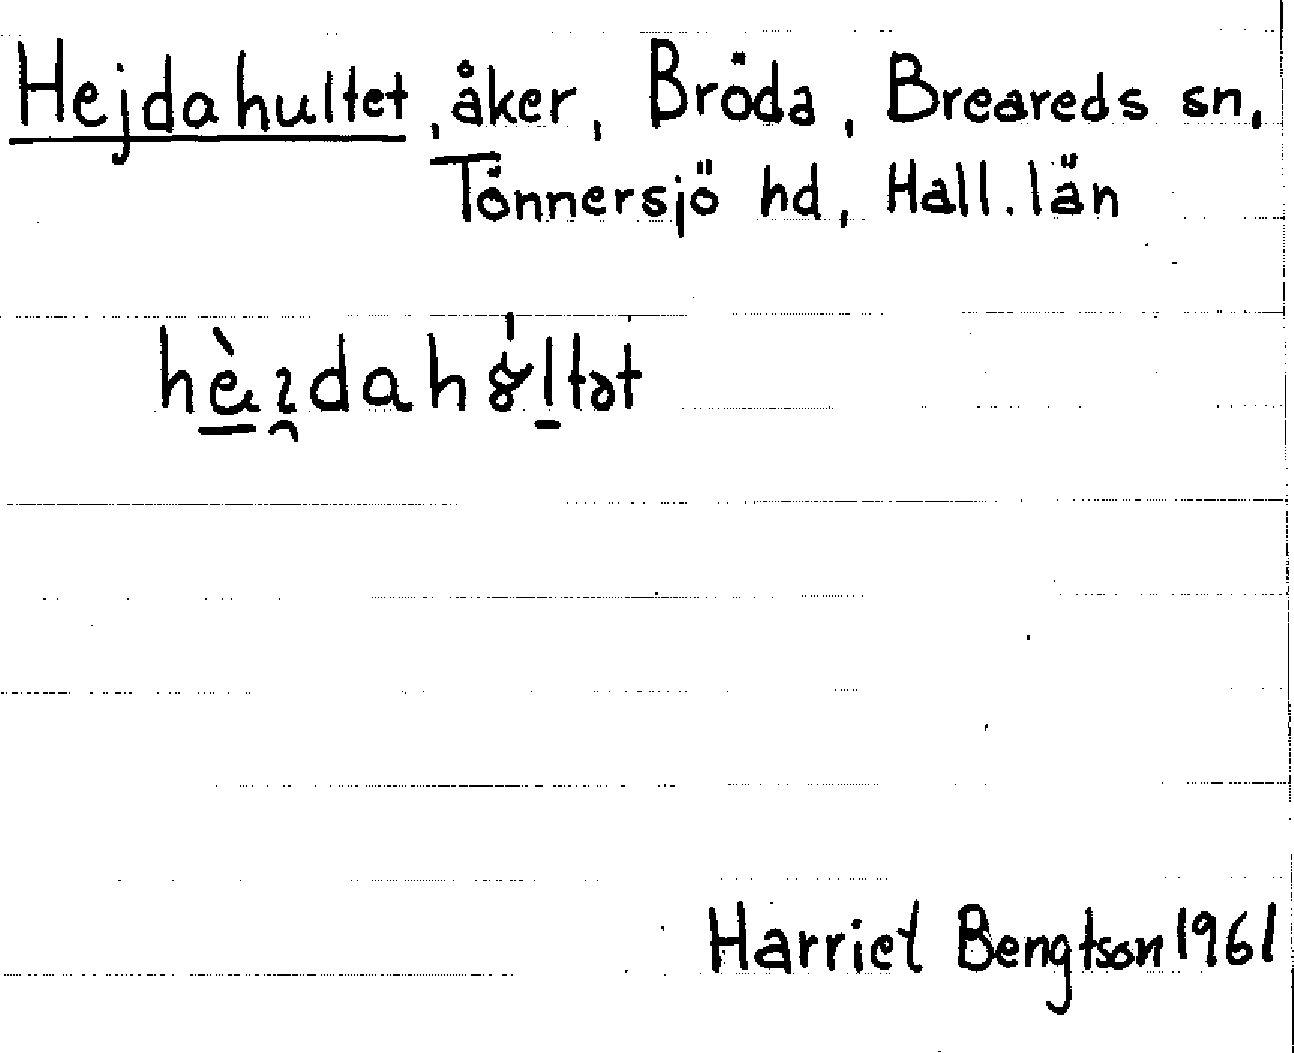 Hejdahultet, åker, Bröda, Breareds sn,
Tönnersjö hd, Hall. län
Harriet Bengtson 1961